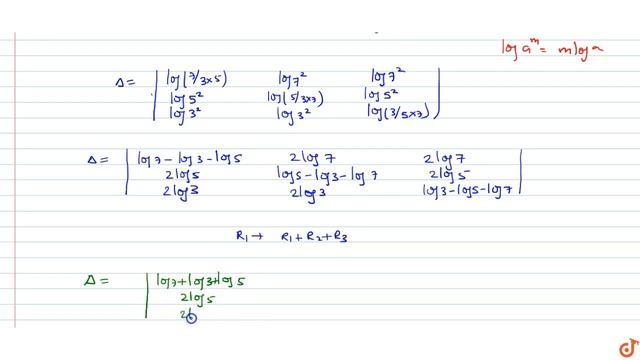 log a^m = m log a
Δ = | log(7/3×5) log 7² log 7² |
log 5² log(5/3×7) log 5²
log 3² log 3² log(3/5×7)
Δ = | log 7 - log 3 - log 5 2 log 7 2 log 7 |
2 log 5 log 5 - log 3 - log 7 2 log 5
2 log 3 2 log 3 log 3 - log 5 - log 7
R₁ → R₁ + R₂ + R₃
Δ = | log 7 + log 3 + log 5
2 log 5
2l